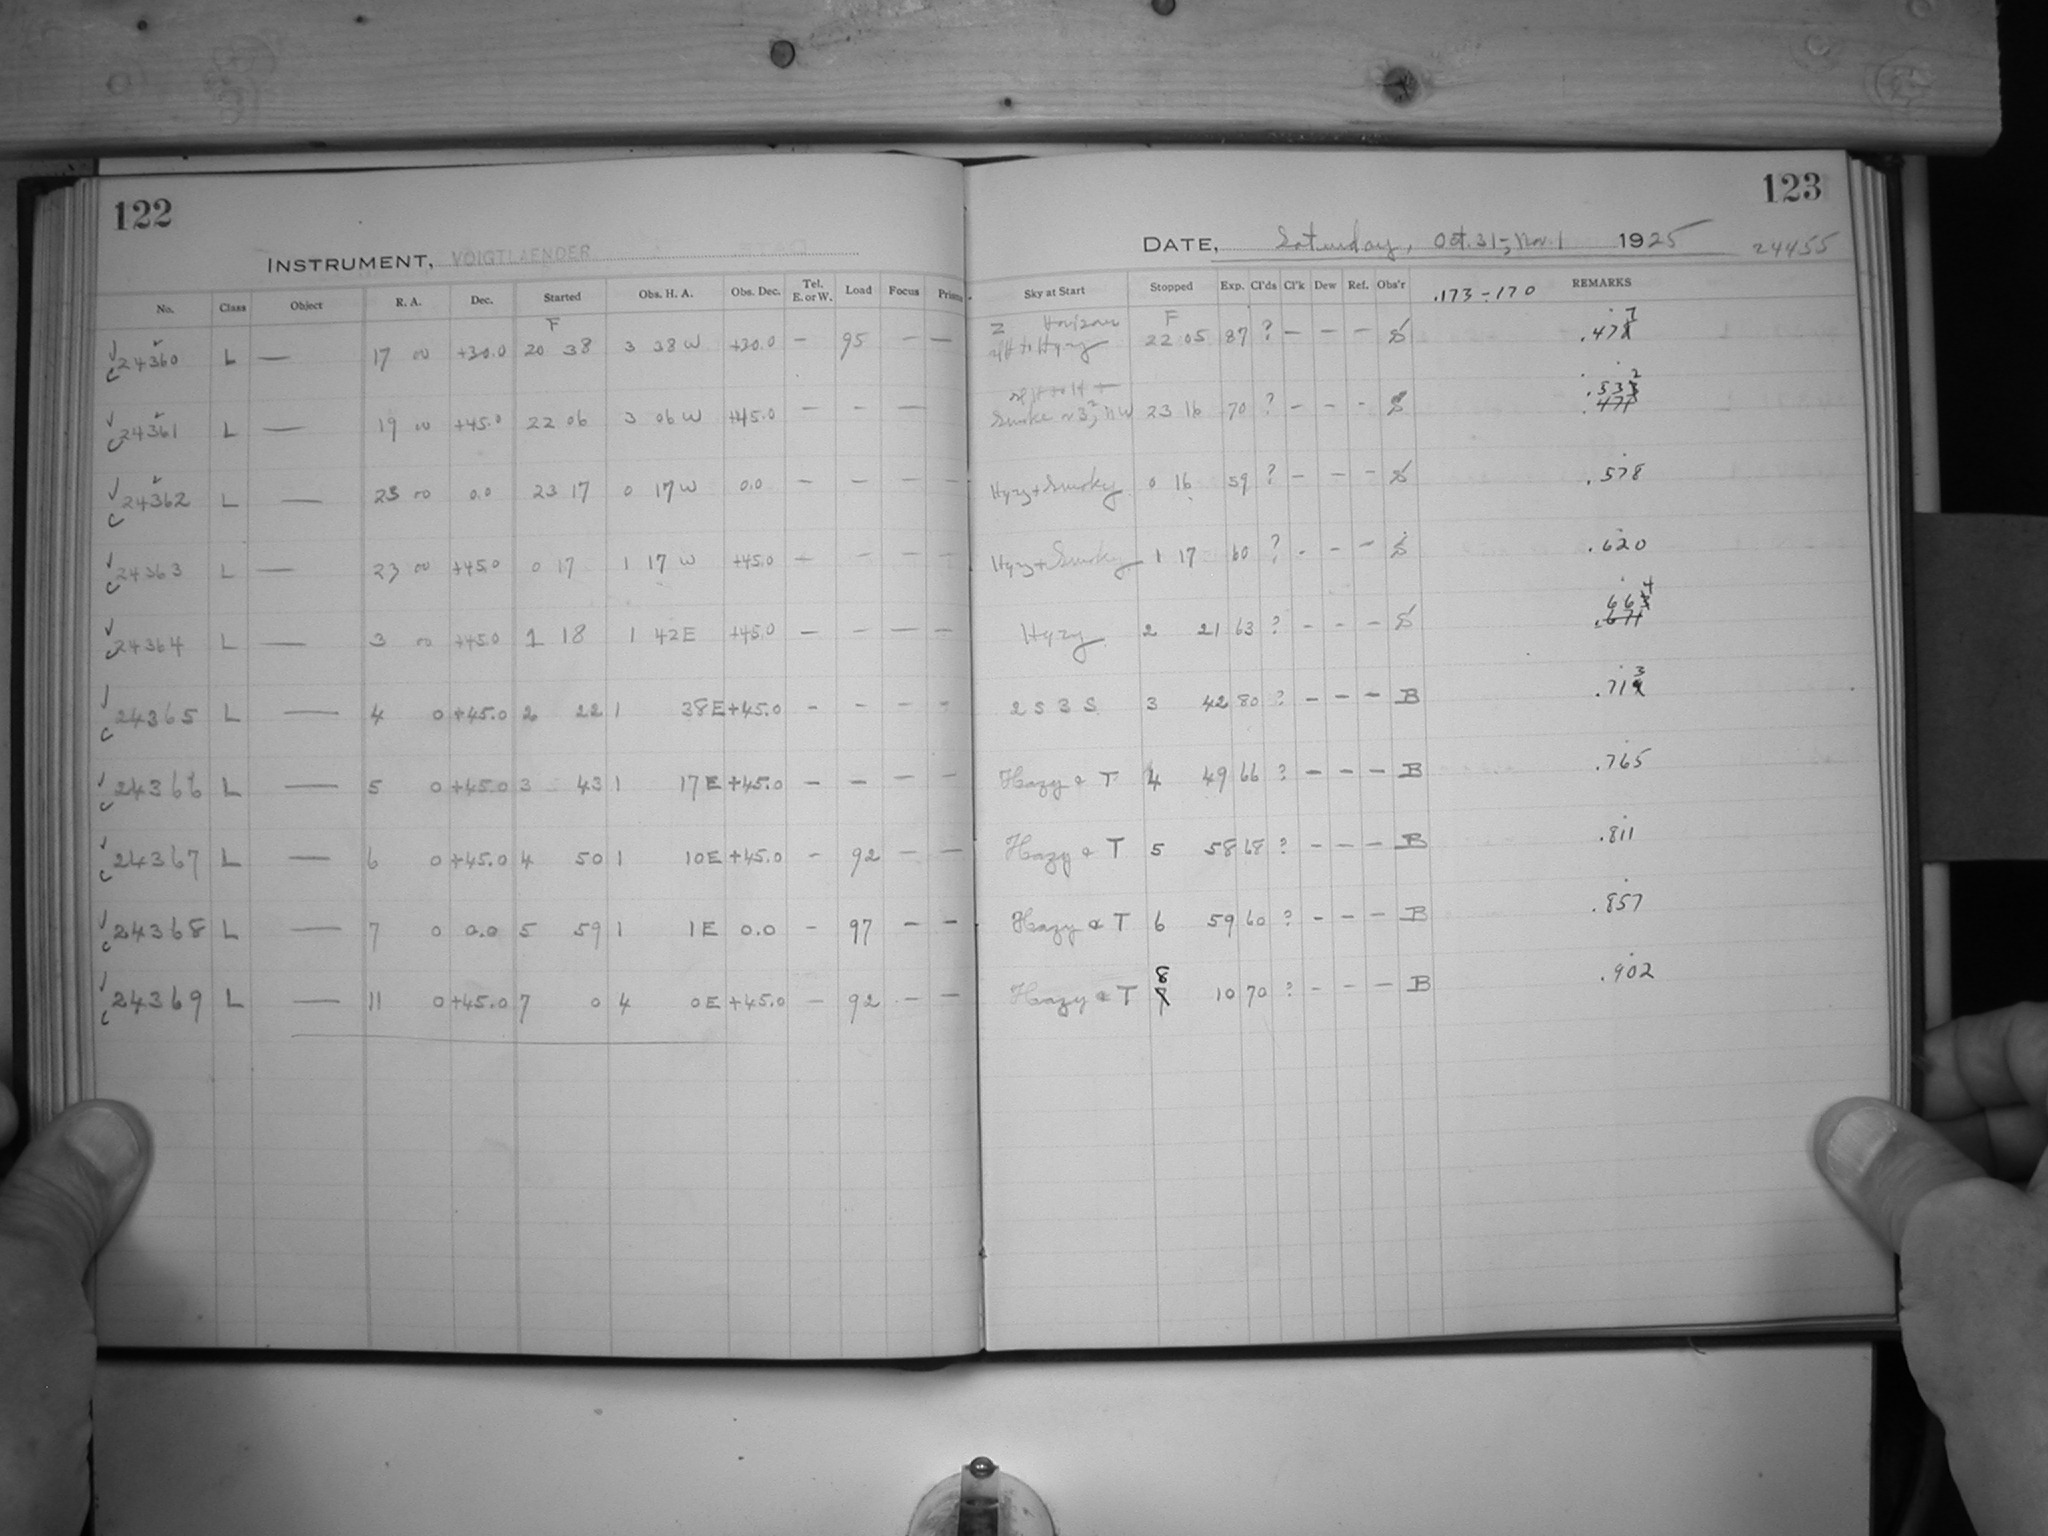 122
INSTRUMENT, VOIGTLAENDER
No. Class Object R. A. Dec. Started Obs. H. A. Obs. Dec. Tel. E. or W. Load Focus Prisms
24360 L — 17 00 +30.0 F 20 38 3 38 W +30.0 — 95 — —
24361 L — 19 00 +45.0 22 06 3 06 W +45.0 — — —
24362 L — 23 00 0.0 23 17 0 17 W 0.0 — — — —
24363 L — 23 00 +45.0 0 17 1 17 W +45.0 — — — —
24364 L — 3 00 +45.0 1 18 1 42 E +45.0 — — — —
24365 L — 4 0 +45.0 2 22 1 38 E +45.0 - - - -
24366 L — 5 0 +45.0 3 43 1 17 E +45.0 — — — —
24367 L — 6 0 +45.0 4 50 1 10 E +45.0 - 92 — —
24368 L — 7 0 0.0 5 59 1 1 E 0.0 - 97 — —
24369 L — 11 0 +45.0 7 0 4 0 E +45.0 — 92 — —
123
DATE, Saturday, Oct. 31-, Nov. 1 1925 24455
Sky at Start Stopped Exp. Cl'ds Cl'k Dew Ref. Obs'r .173-.170 REMARKS
Z Horizon
to Hazy F 22 05 87 ? — — — S .477
Smoke NW 23 16 70 ? - - - S .532
Hazy + Smoky 0 16 59 ? — — — S .578
Hazy + Smoky 1 17 60 ? - - — S .620
Hazy 2 21 63 ? - - — S .664
2 S 3 S 3 42 80 ? — — — B .713
Hazy & T 4 49 66 ? — — — B .765
Hazy & T 5 58 68 ? — — — B .811
Hazy & T 6 59 60 ? — — — B .857
Hazy & T 8 10 70 ? - - — B .902